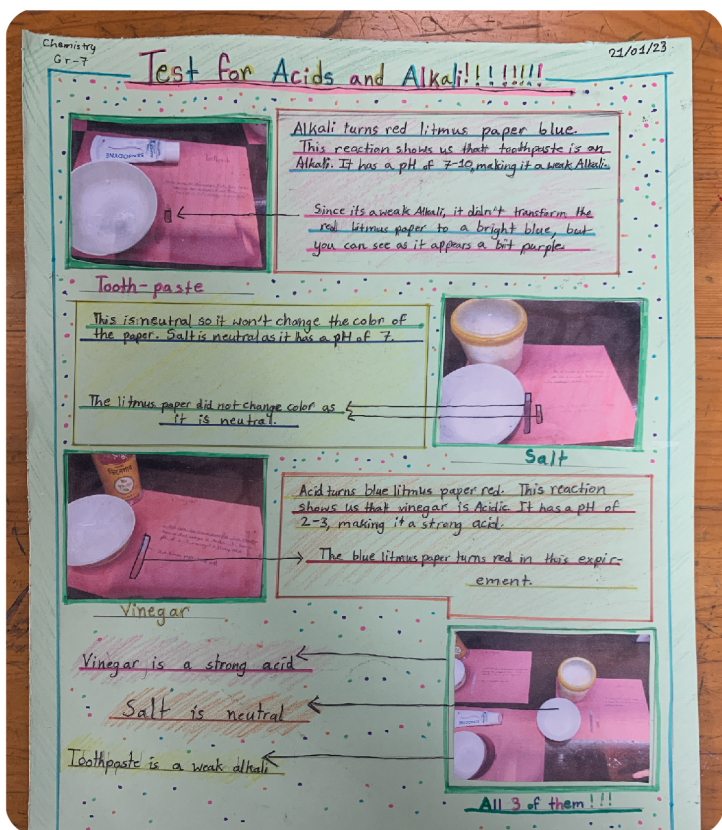 Chemistry
Gr-7
21/01/23.
Test for Acids and Alkali!!!!!!!!
Alkali turns red litmus paper blue.
This reaction shows us that toothpaste is an
Alkali. It has a pH of 7-10, making it a weak Alkali.
Since its a weak Alkali, it didn't transform the
red litmus paper to a bright blue, but
you can see as it appears a bit purple.
SENSODYNE
Tooth-paste
This is neutral so it won't change the color of
the paper. Salt is neutral as it has a pH of 7.
The litmus paper did not change color as
it is neutral.
Salt
Acid turns blue litmus paper red. This reaction
shows us that vinegar is Acidic. It has a pH of
2-3, making it a strong acid.
The blue litmus paper turns red in this expir-
ement.
Vinegar
Vinegar is a strong acid
Salt is neutral
Toothpaste is a weak alkali
All 3 of them!!!